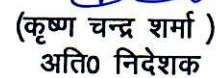 (कृष्ण चन्द्र शर्मा )
अति0 निदेशक